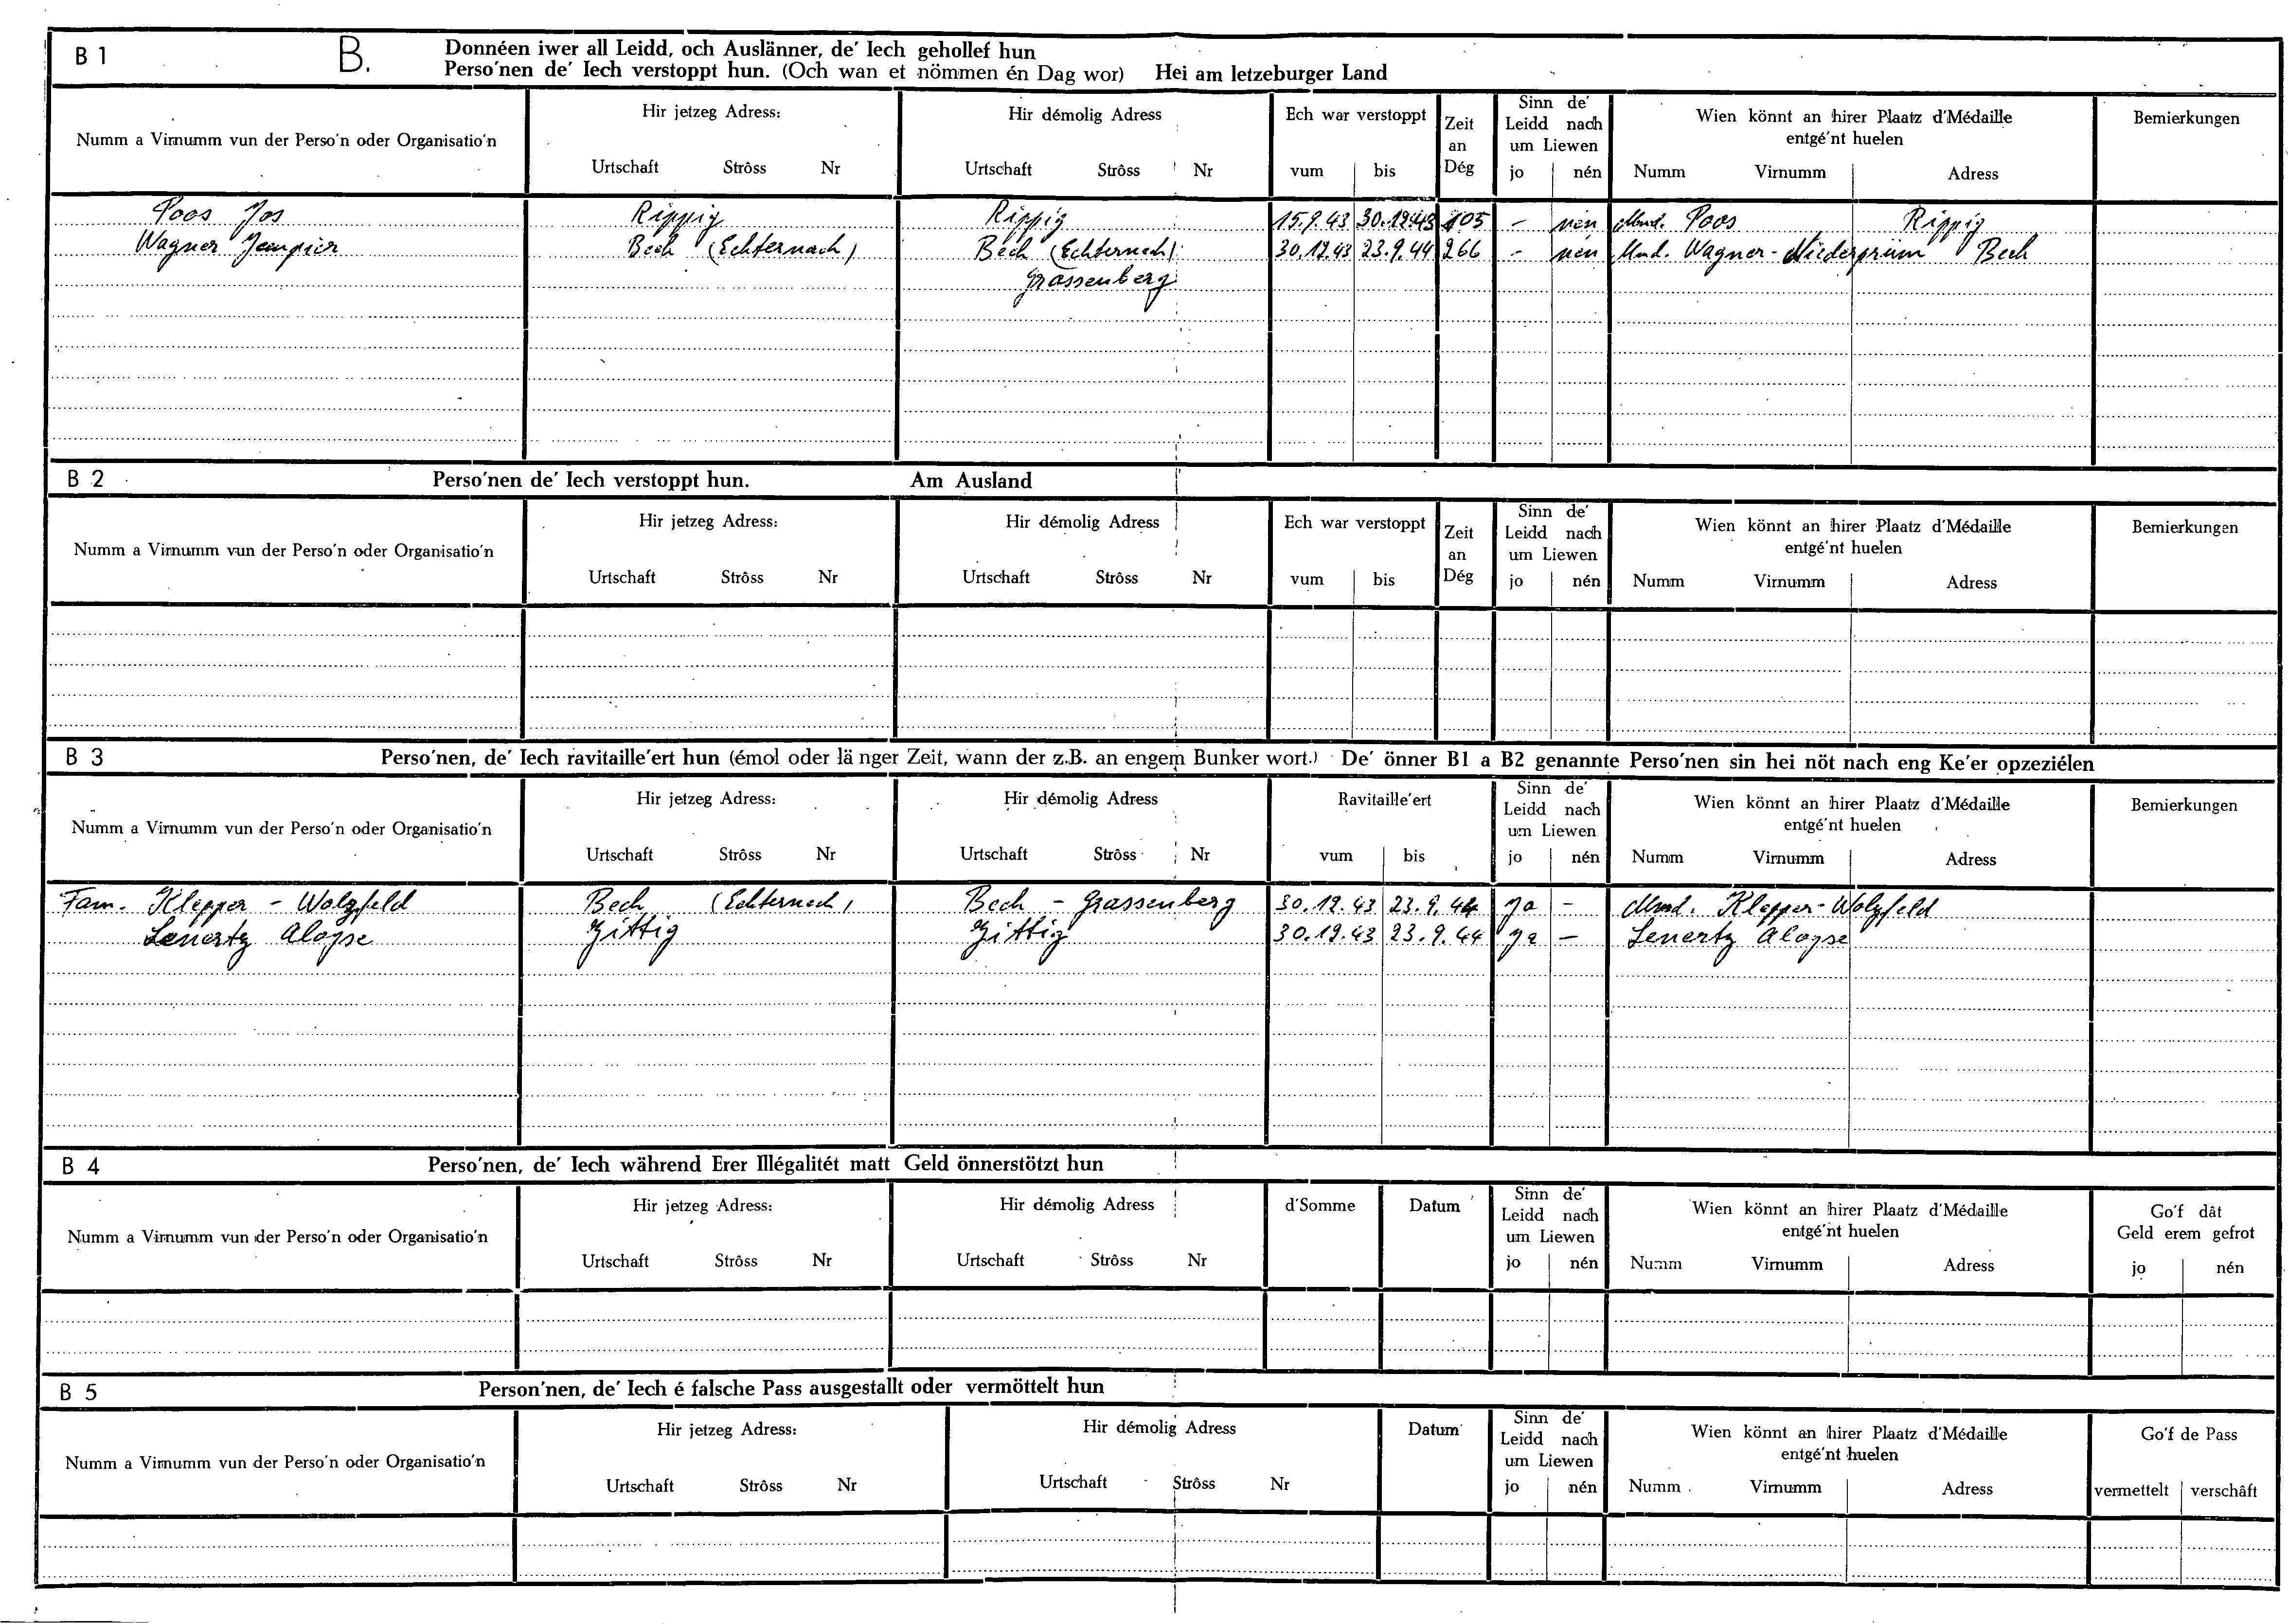 B 1 B. Donnéen iwer all Leidd, och Auslänner, de' Iech gehollef hun
Perso'nen de' Iech verstoppt hun. (Och wan et nömmen én Dag wor) Hei am letzeburger Land
Numm a Virnumm vun der Perso'n oder Organisatio'n
Hir jetzeg Adress:
Urtschaft Strôss Nr
Hir démolig Adress
Urtschaft Strôss Nr
Ech war verstoppt
vum bis
Zeit
an
Dég
Sinn de'
Leidd nach
um Liewen
jo nén
Wien könnt an hirer Plaatz d'Médaille
entgé'nt huelen
Numm Virnumm Adress
Bemierkungen
Poos Jos Rippig Rippig 15.9.43 30.12.43 105 - nén Mad. Poos Rippig
Wagner Jempier Bech (Echternach) Bech (Echternach) 30.12.43 23.9.44 266 - nén Mad. Wagner-Niederprüm Bech
Grassenberg
B 2 Perso'nen de' Iech verstoppt hun. Am Ausland
Numm a Virnumm vun der Perso'n oder Organisatio'n
Hir jetzeg Adress:
Urtschaft Strôss Nr
Hir démolig Adress
Urtschaft Strôss Nr
Ech war verstoppt
vum bis
Zeit
an
Dég
Sinn de'
Leidd nach
um Liewen
jo nén
Wien könnt an hirer Plaatz d'Médaille
entgé'nt huelen
Numm Virnumm Adress
Bemierkungen
B 3 Perso'nen, de' Iech ravitaille'ert hun (émol oder länger Zeit, wann der z.B. an engem Bunker wort.) De' önner B1 a B2 genannte Perso'nen sin hei nöt nach eng Ke'er opzeziélen
Numm a Virnumm vun der Perso'n oder Organisatio'n
Hir jetzeg Adress:
Urtschaft Strôss Nr
Hir démolig Adress
Urtschaft Strôss Nr
Ravitaille'ert
vum bis
Sinn de'
Leidd nach
um Liewen
jo nén
Wien könnt an hirer Plaatz d'Médaille
entgé'nt huelen
Numm Virnumm Adress
Bemierkungen
Fam. Klepper - Wolzfeld Bech (Echternach) Bech - Grassenberg 30.12.43 23.9.44 ja - Mad. Klepper-Wolzfeld
Lenertz Aloyse Zittig Zittig 30.12.43 23.9.44 ja - Lenertz Aloyse
B 4 Perso'nen, de' Iech während Erer Illégalitét matt Geld önnerstötzt hun
Numm a Virnumm vun der Perso'n oder Organisatio'n
Hir jetzeg Adress:
Urtschaft Strôss Nr
Hir démolig Adress
Urtschaft Strôss Nr
d'Somme
Datum
Sinn de'
Leidd nach
um Liewen
jo nén
Wien könnt an hirer Plaatz d'Médaille
entgé'nt huelen
Numm Virnumm Adress
Go'f dât
Geld erem gefrot
jo nén
B 5 Person'nen, de' Iech é falsche Pass ausgestallt oder vermöttelt hun
Numm a Virnumm vun der Perso'n oder Organisatio'n
Hir jetzeg Adress:
Urtschaft Strôss Nr
Hir démolig Adress
Urtschaft Strôss Nr
Datum
Sinn de'
Leidd nach
um Liewen
jo nén
Wien könnt an hirer Plaatz d'Médaille
entgé'nt huelen
Numm Virnumm Adress
Go'f de Pass
vermettelt verschâft